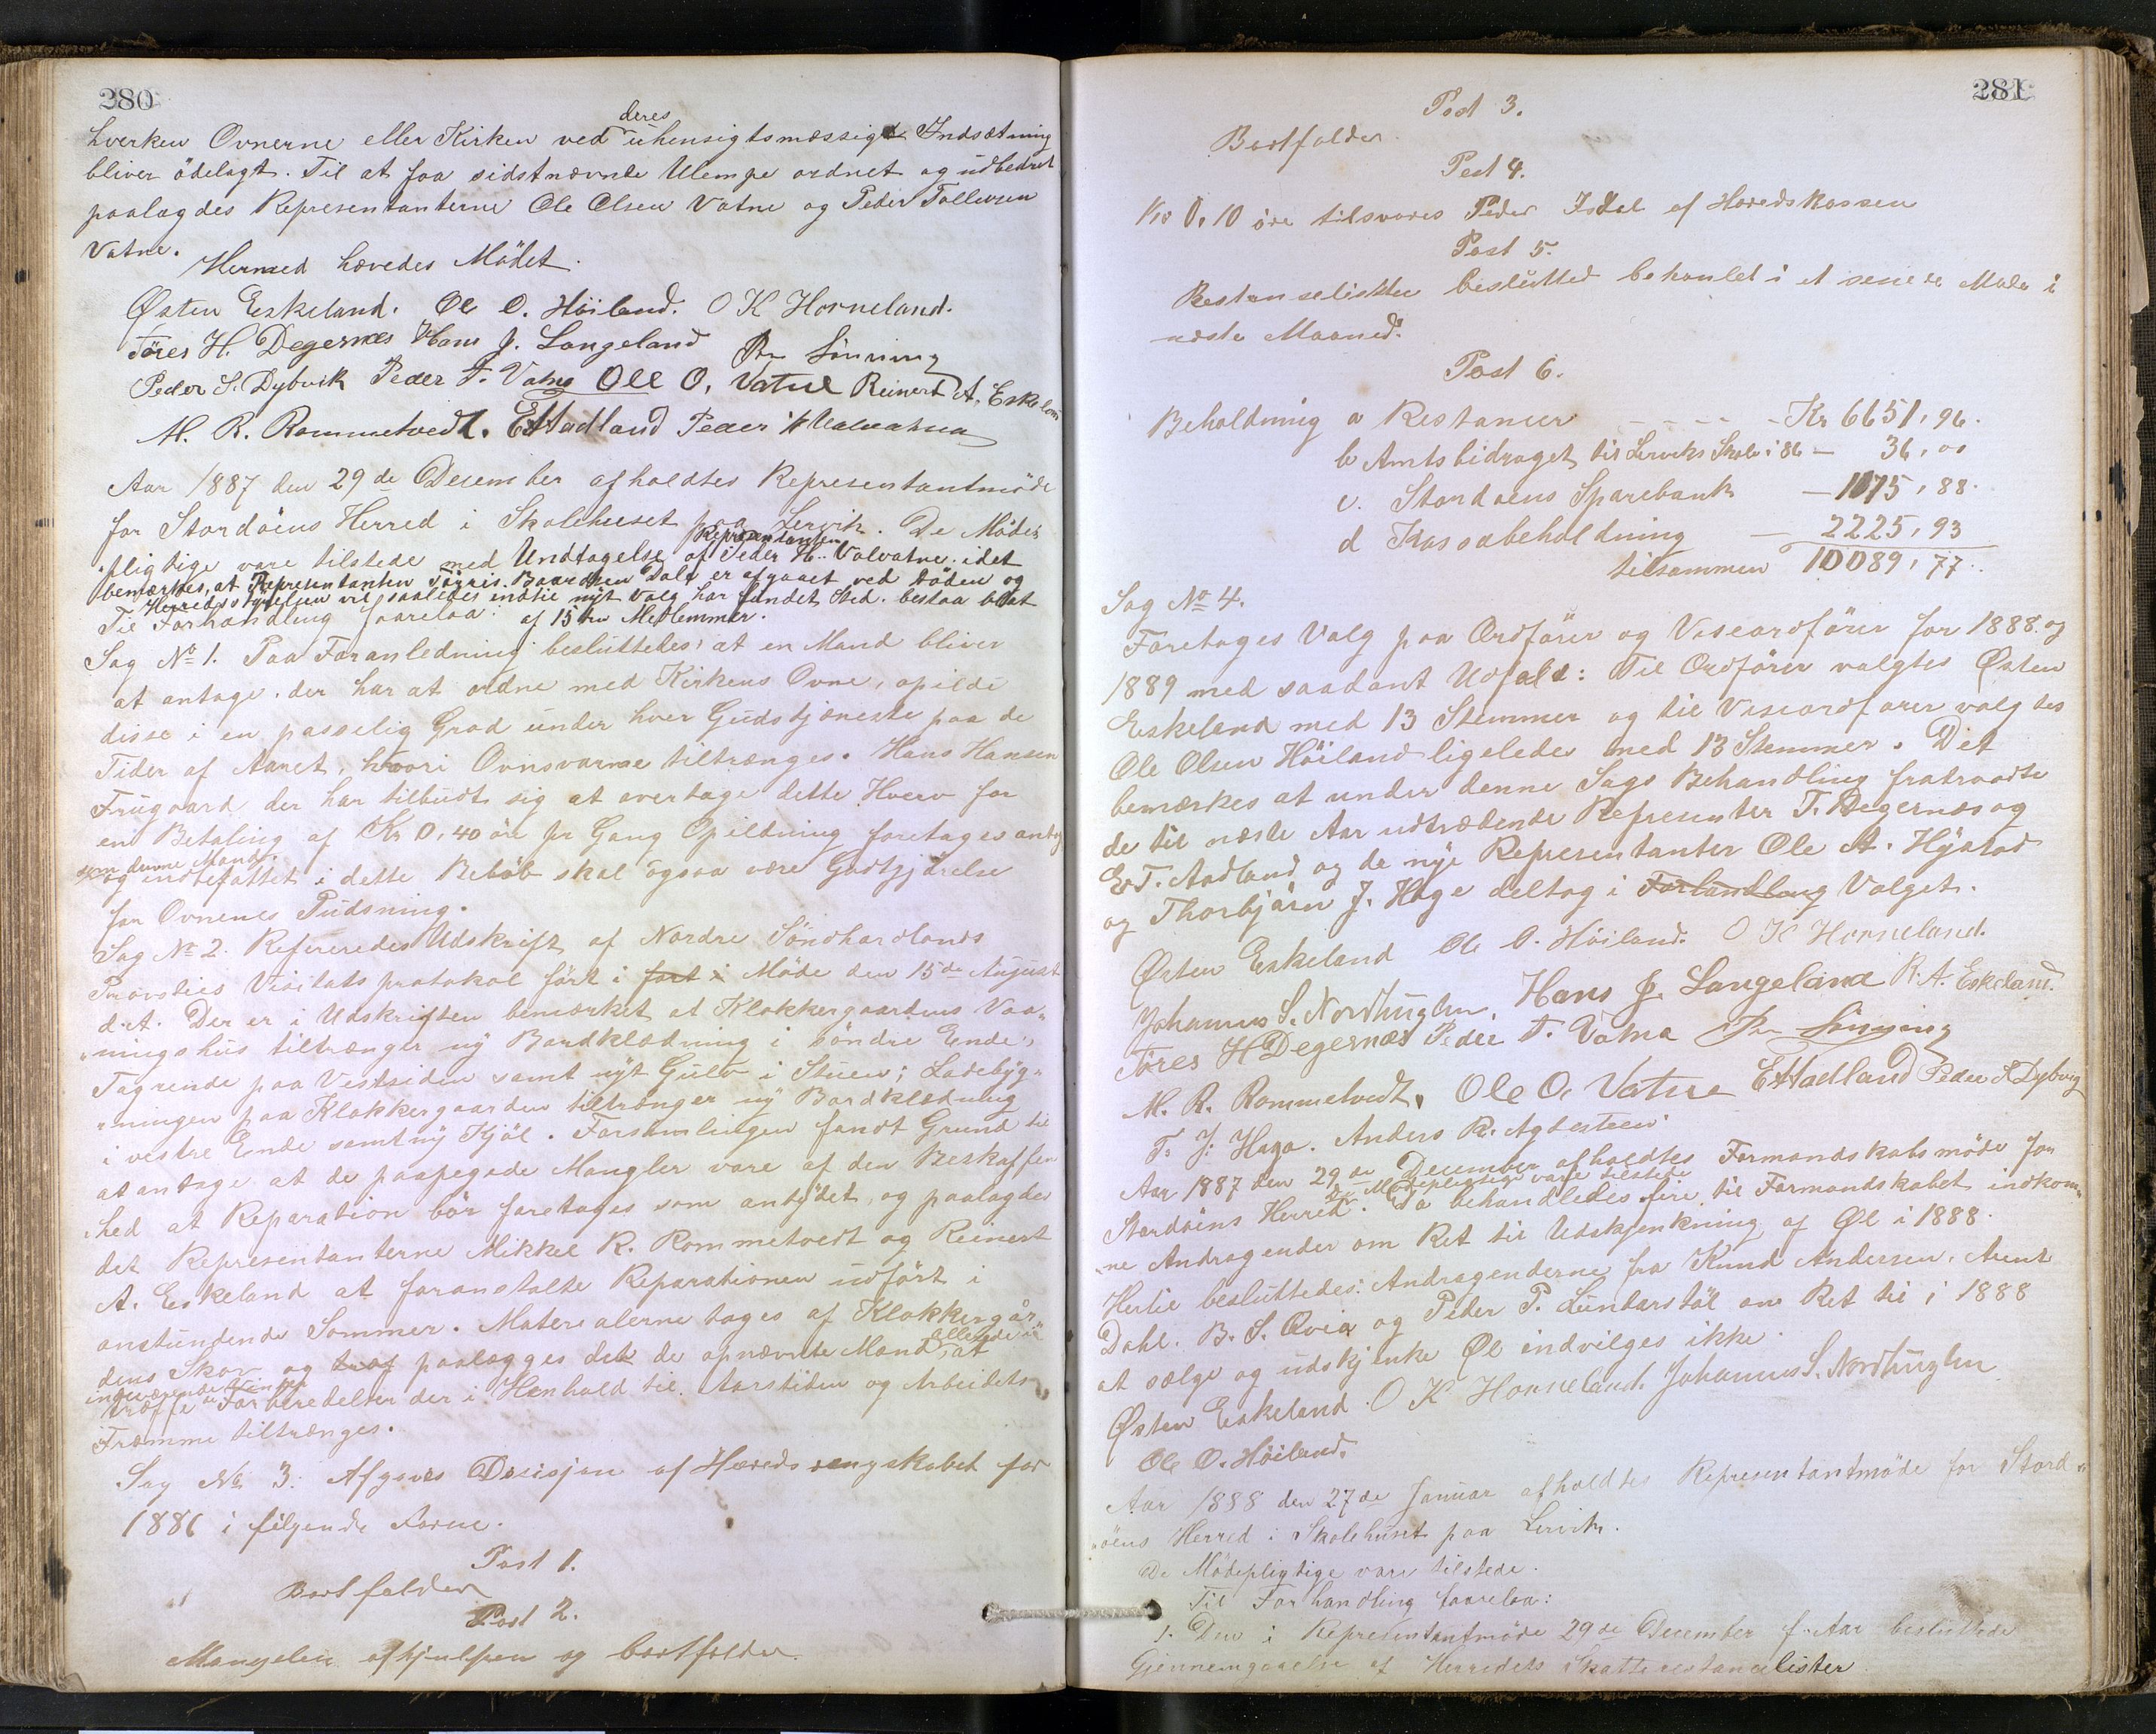 280
deres
hverken Ovnerne eller Kirken ved uhensigtsmæssige Indsætning
bliver ödelagt. Til at faa sidstnævnte Ulempe ordnet og udbedret
paalagdes Representanterne Ole Olsen Vatne og Peder Tollevsen
Vatne.
Hermed hævedes Mödet.
Østen Eskeland. Ole O. Höiland. O K Horneland.
Töres H. Degernæs Hans J. Langeland Per Sönning
Peder S. Dybvik Peder T. Vatna Ole O. Vatne Reinert A. Eskeland
M. R. Rommetvedt. E T Aadland Peder H Valvatna
Aar 1887 den 29de Desember afholdtes Representantmöde
for Stordöens Herred i Skolehuset paa Lervik. De Möde-
pligtige vare tilstede med Undtagelse af Representanten Peder H. Valvatne, idet
bemærkes, at Representanten Törris Baardsen Dale er afgaaet ved Döden og
Herredsstyrelsen vil saaledes indtil nyt Valg har fundet Sted. bestaa blot
Til Forhandling foorelaa: af 15ten Medlemmer.
Sag No 1. Paa Foranledning besluttedes: at en Mand bliver
at antage, der har at ordne med Kirkens Ovne, opilde
disse i en passelig Grad under hver Gudstjæneste paa de
Tider af Aaret, hvori Ovnsvarme tiltrænges. Hans Hansen
Frugaard der har tilbudt sig at overtage dette Hverv for
en Betaling af Kr 0,40 öre pr Gang Opildning foretages antog
som denne Mand.
og indbefattet i dette Belöb skal ogsaa være Godtgjörelse
for Ovnenes Pudsning.
Sag No 2. Refereredes Udskrift af Nordre Söndhordlands
Provsties Visitatsprotokol fört i fört i Möde den 15de August
d. A. Der er i Udskriften bemærket at Klokkergaardens Vaa-
ningshus tiltrænger ny Bordklædning i söndre Ende,
Tagrende paa Vestsiden samt nyt Gulv i Stuen; Ladebyg-
ningen paa Klokkergaarden tiltrænger ny Bordklædning
i vestre Ende samt ny Kjöl. Forsamlingen fandt Grund til
at antage at de paapegede Mangler vare af den Beskaffen
hed at Reparation bör foretages som antydet, og paalagdes
det Representanterne Mikkel R. Rommetvedt og Reinert
A. Eskeland at foranstalte Reparationen udfört i
anstundende Sommer. Materialerne tages af Klokkergår
dens Skov og paalægges det de opnævnte Mænd allerede i at
indeværende Vinter
træffe de Forberedelser der i Henhold til Aarstiden og Arbeidets
Fremme tiltrænges.
Sag No 3. Afgaves Desisjon af Herredsrengskabet for
1886 i fölgende Form.
Post 1.
Bortfalder
Post 2.
Mangelen afhjulpen og bortfalder.
281
Post 3.
Bortfalder.
Post 4.
Kr 0,10 öre tilsvares Peder Isdal af Heredskassen
Post 5.
Restanselisten besluttet behanlet i et senere Möde i
næste Maaned.
Post 6.
Beholdning a Restancer - - - - - Kr 6651,96.
b Amtsbidraget til Lerviks Skole i 86 — 36,00
c. Stordöens Sparebank — 1175,88.
d Kassabeholdning — 2225,93
tilsammen 10089,77.
Sag No 4.
Foretoges Valg paa Ordförer og Viseordförer for 1888 og
1889 med saadant Udfald: Til Ordförer valgtes Østen
Eskeland med 13 Stemmer og til Viseordförer valgtes
Ole Olsen Höiland ligeledes med 13 Stemmer. Det
bemærkes at under denne Sags Behandling fratraadte
de til næste Aar udtrædende Represænter T. Degernæs og
E. T. Aadland og de nye Representanter Ole A. Hystad
og Thorbjörn J. Hage deltog i Forhandling Valget.
Østen Eskeland Ole O. Höiland. O K Horneland.
Johannes S. Nordhuglen. Hans J. Langeland R. A. Eskeland.
Töres H Degernæs Peder T. Vatna Per Sönning
M. R. Rommetvedt. Ole O. Vatne E T Aadland Peder S Dybvig
T. J. Haga. Anders R. Agdesteen
Aar 1887 den 29de December afholdtes Formandskabsmöde for
De Mödepligtige vare tilstede
Stordöens Herred. Da behandledes fire til Formandskabet indkom-
ne Andragender om Ret til Udskjenkning af Øl i 1888.
Hertil besluttedes: Andragenderne fra Knud Andersen, Arent
Dahl. B. S. Qvia og Peder P. Lundarstöl om Ret til i 1888
at sælge og udskjenke Øl indvilges ikke.
Østen Eskeland. O K Horneland. Johannes S. Nordhuglen
Ole O. Höiland.
Aar 1888 den 27de Januar afholdtes Representantmöde for Stord-
öens Herred i Skolehuset paa Lervik.
De Mödepligtige vare tilstede.
Til Forhandling foorelaa:
1. Den i Representantmöde 29de December f. Aar besluttede
Gjennemgaaelse af Herredets Skatterestancelister